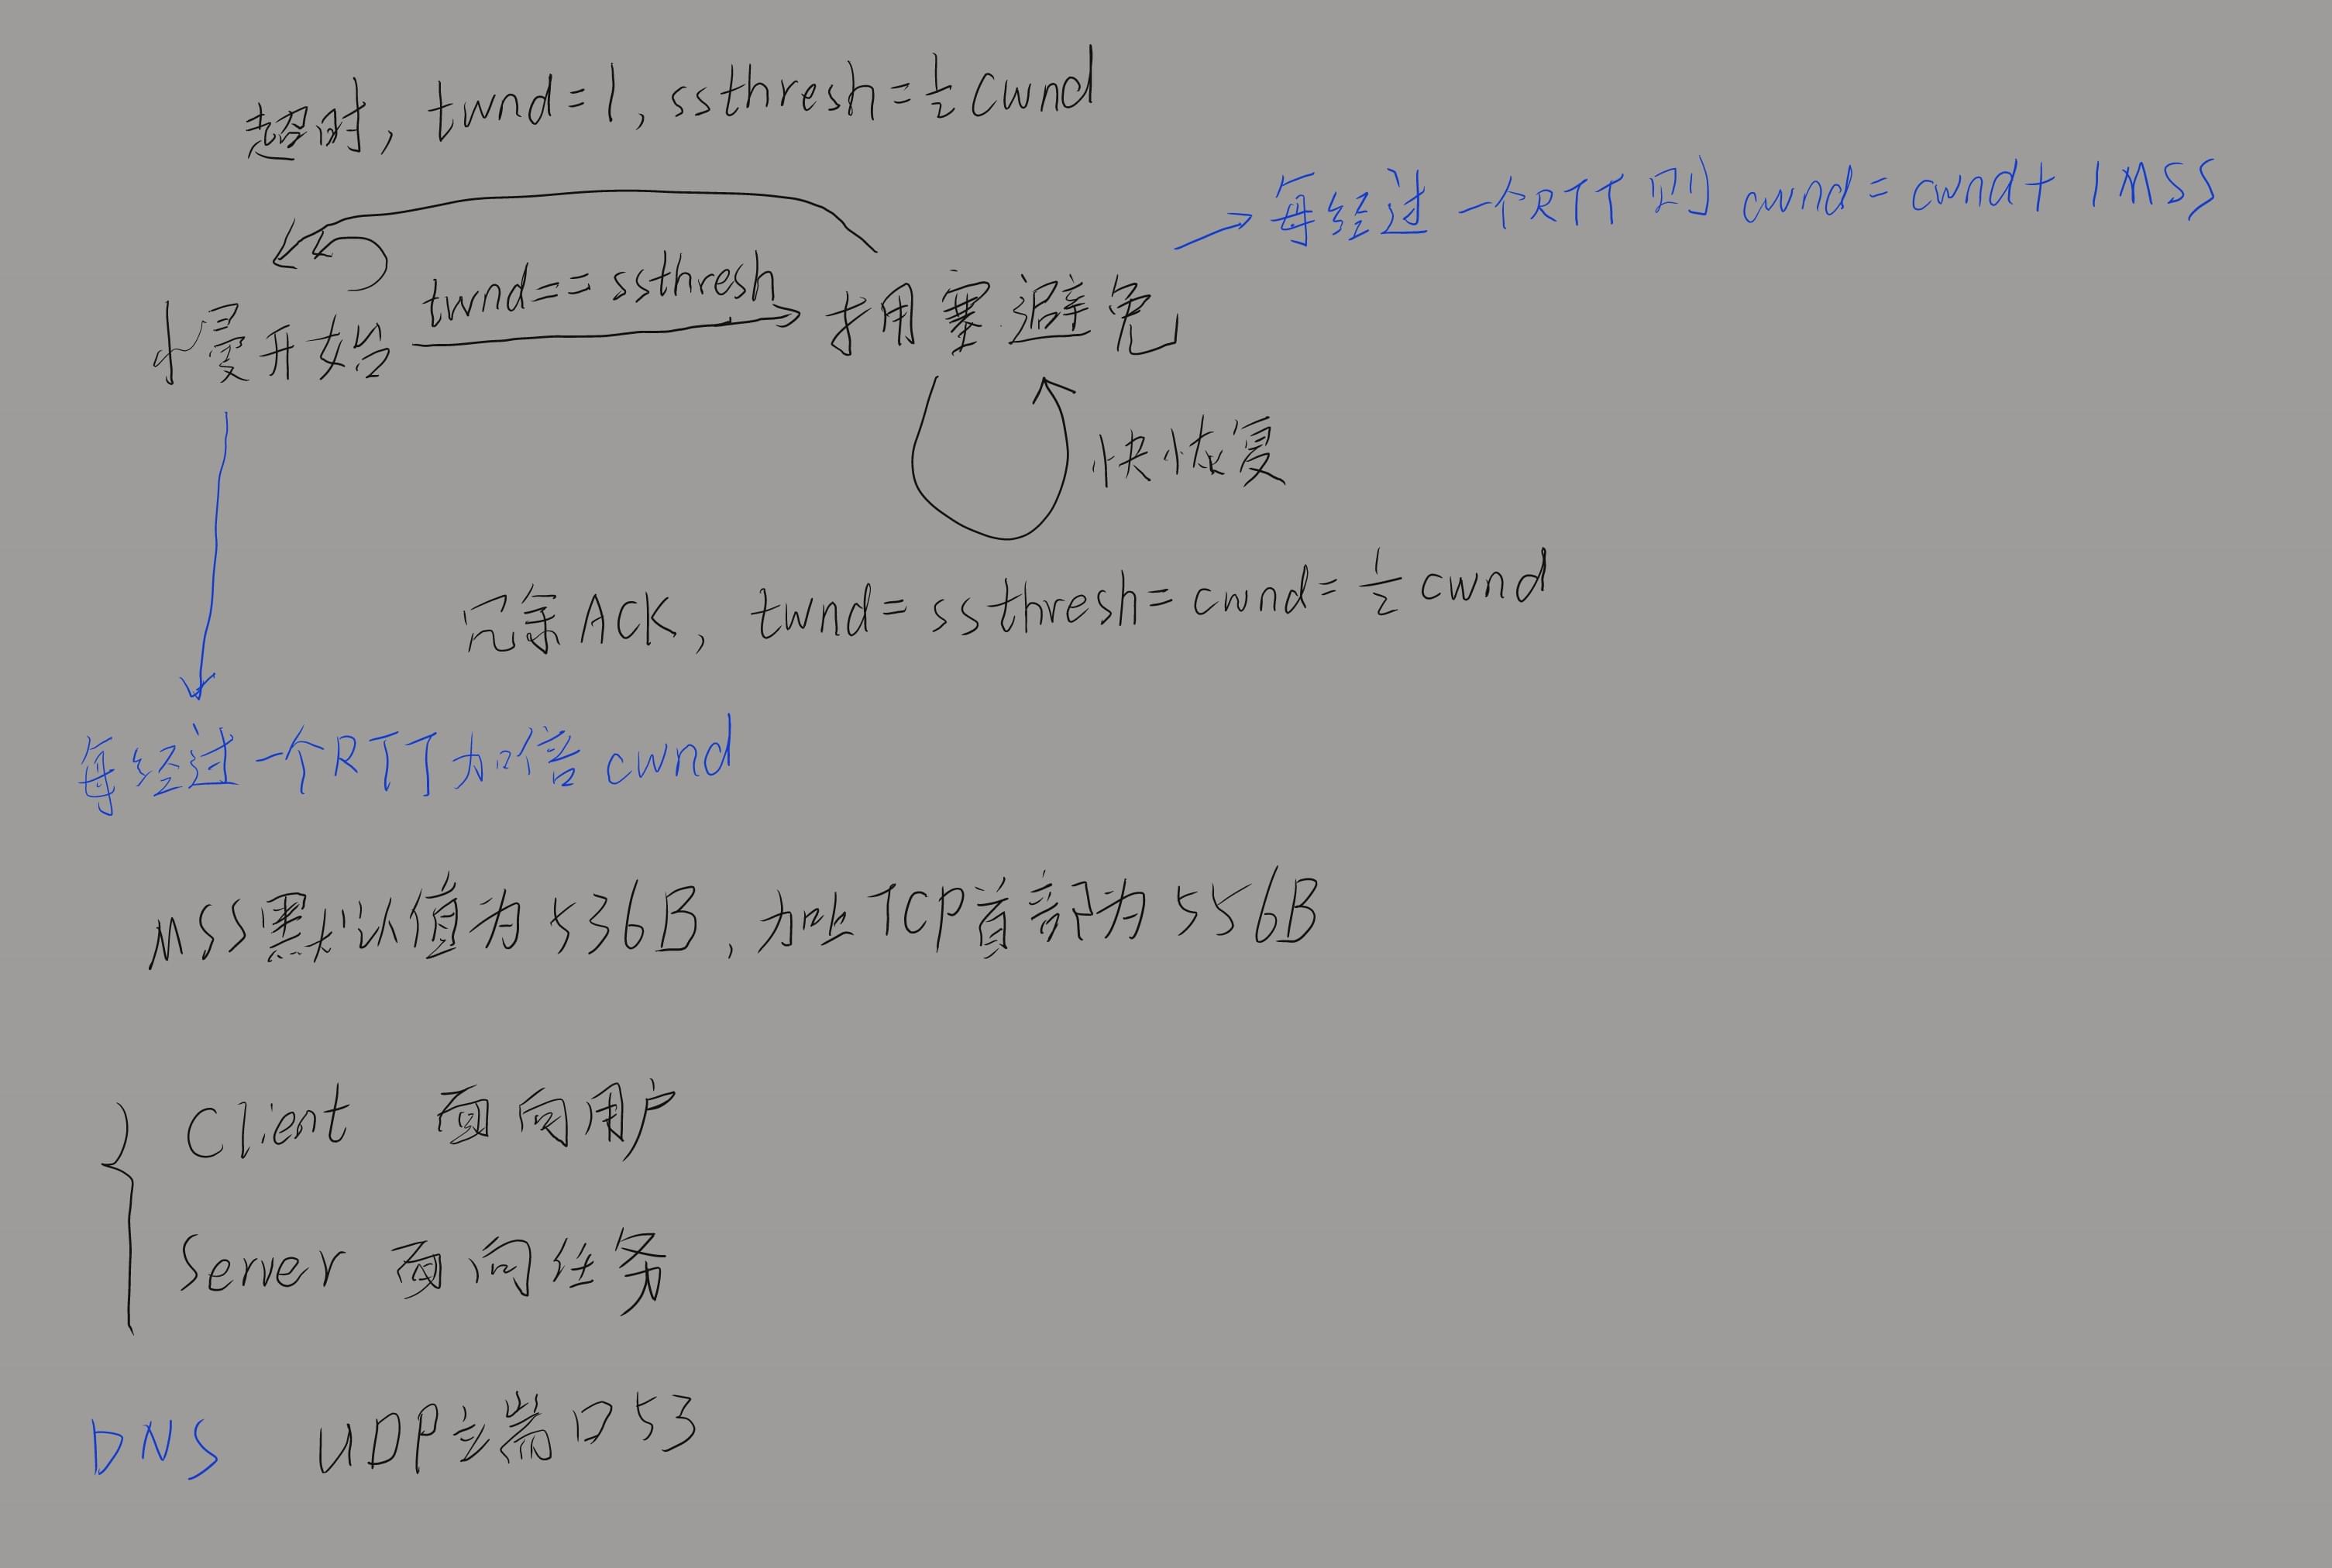 超时, twnd=1, ssthresh=½cwnd
→每经过一个RTT则cwnd=cwnd+1MSS
twnd==ssthresh
慢开始
拥塞避免
快恢复
冗余ACK, twnd=ssthresh=cwnd=½cwnd
每经过一个RTT加倍cwnd
MSS默认值为536B,加上TCP首部为556B
Client 面向用户
Server 面向任务
DNS UDP端口53